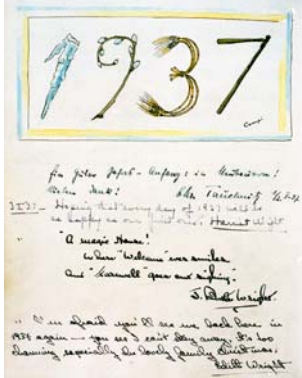 1937
Ein guter Jahres-Anfang in
Vielen Dank!
Hoping that every day of 1937 will be
as happy as our first one. Harriet Wright
"A magic House!
where "Welcome" ever smiles
and "Farewell" goes out sighing."
Wright.
I'm afraid you'll see me back here in
1938 again — you see I can't stay away. It's too
charming, especially the lovely family Christmas.
Edith Wright